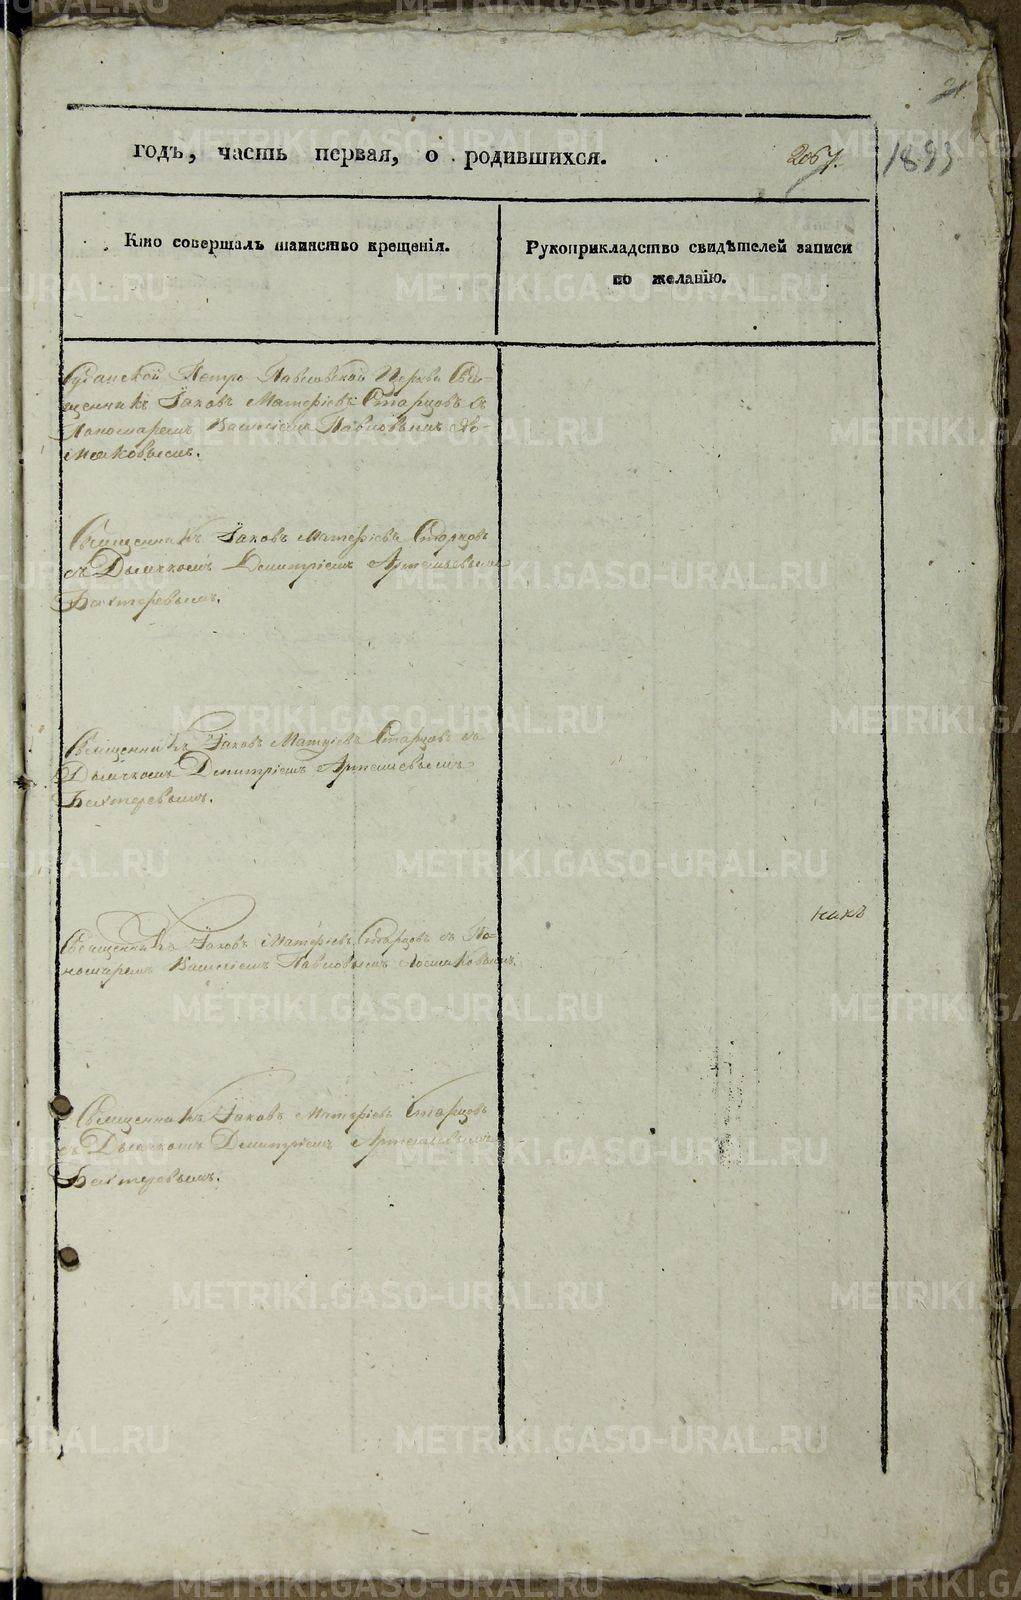 годъ, часть первая, о родившихся.
Кто совершалъ таинство крещенія.
Рукоприкладство свидѣтелей записи
по желанію.
Петро Павловской Церкви Свя-
щенникъ Іаковъ Матѳіевъ Старцовъ съ
Пономаремъ Василіемъ Павловымъ
Священникъ Іаковъ Матѳіевъ Старцовъ
съ Дьячкомъ Димитріемъ Артемьевымъ
Бахтеревымъ.
Священникъ Іаковъ Матѳіевъ Старцовъ съ
Дьячкомъ Димитріемъ Артемьевымъ
Бахтеревымъ.
какъ
Священникъ Іаковъ Матѳіевъ Старцовъ съ По-
номаремъ Василіемъ Павловымъ
Священникъ Іаковъ Матѳіевъ Старцовъ
съ Дьячкомъ Димитріемъ Артемьевымъ
Бахтеревымъ.
METRIKI.GASO-URAL.RU